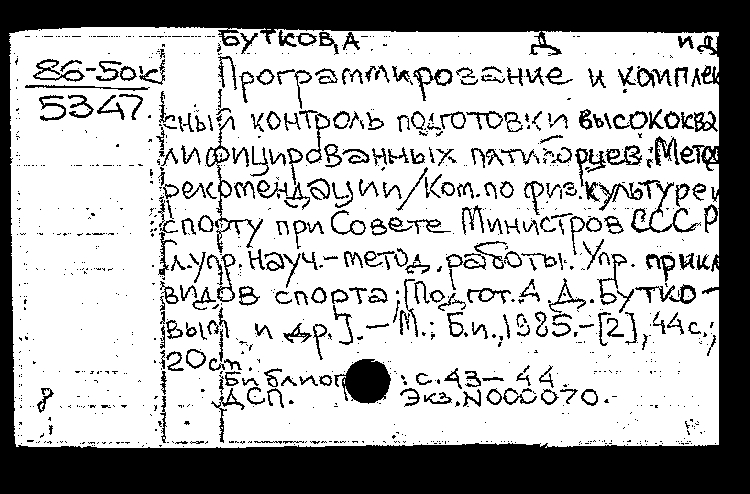 БУТКОВ, А Д и др
86-5ок
5347.
Программирование и комплек
сный контроль подготовки высококва
лифицированных пятиборцев: Метод
рекомендации/Ком.по физ.культуре и
спорту при Совете Министров СССР
Гл.упр.науч.-метод.работы. Упр. прикл
видов спорта; [Подгот. А.Д.Бутко-
вым и др.].-М.: Б.и.,1985.-[2],44с.;
20cm.
Библиог : с.43-44.
ДСП. Экз.N000070.
8